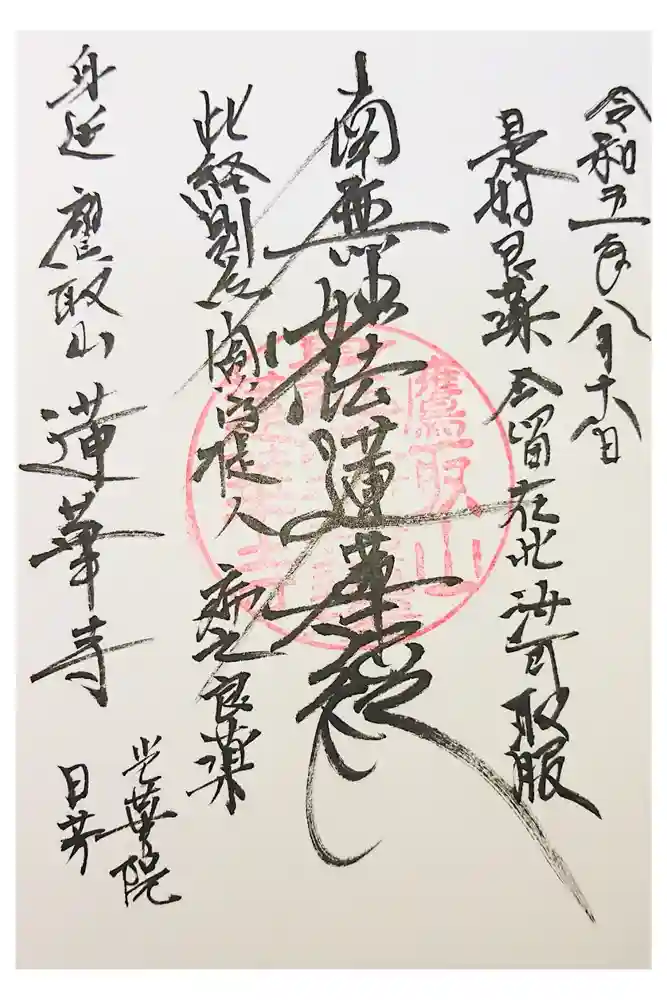 令和五年八月十六日
是好良薬今留在此汝可取服
南無妙法蓮華経
此経則為閻浮提人 病之良薬
身延 鷹取山 蓮華寺
日
鷹取山